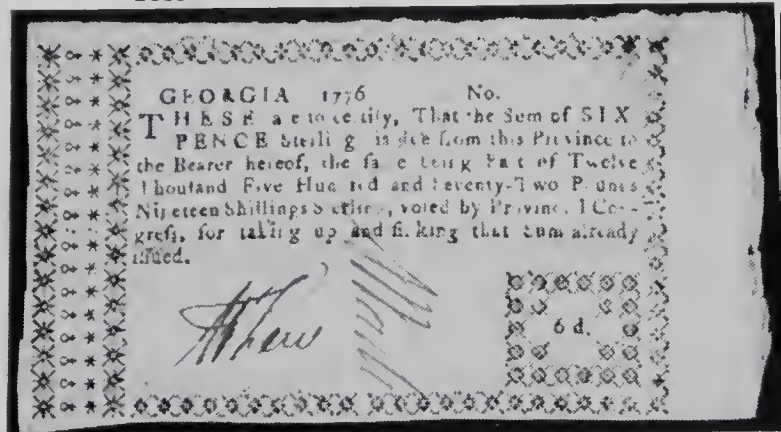 GEORGIA 1776 No.
THESE are to certify, That the Sum of SIX
PENCE Sterling is due from this Province to
the Bearer hereof, the same being Part of Twelve
Thousand Five Hundred and Seventy-Two Pounds
Nineteen Shillings Sterling, voted by Provincial Con-
gress, for taking up and sinking that Sum already
issued.
6 d.